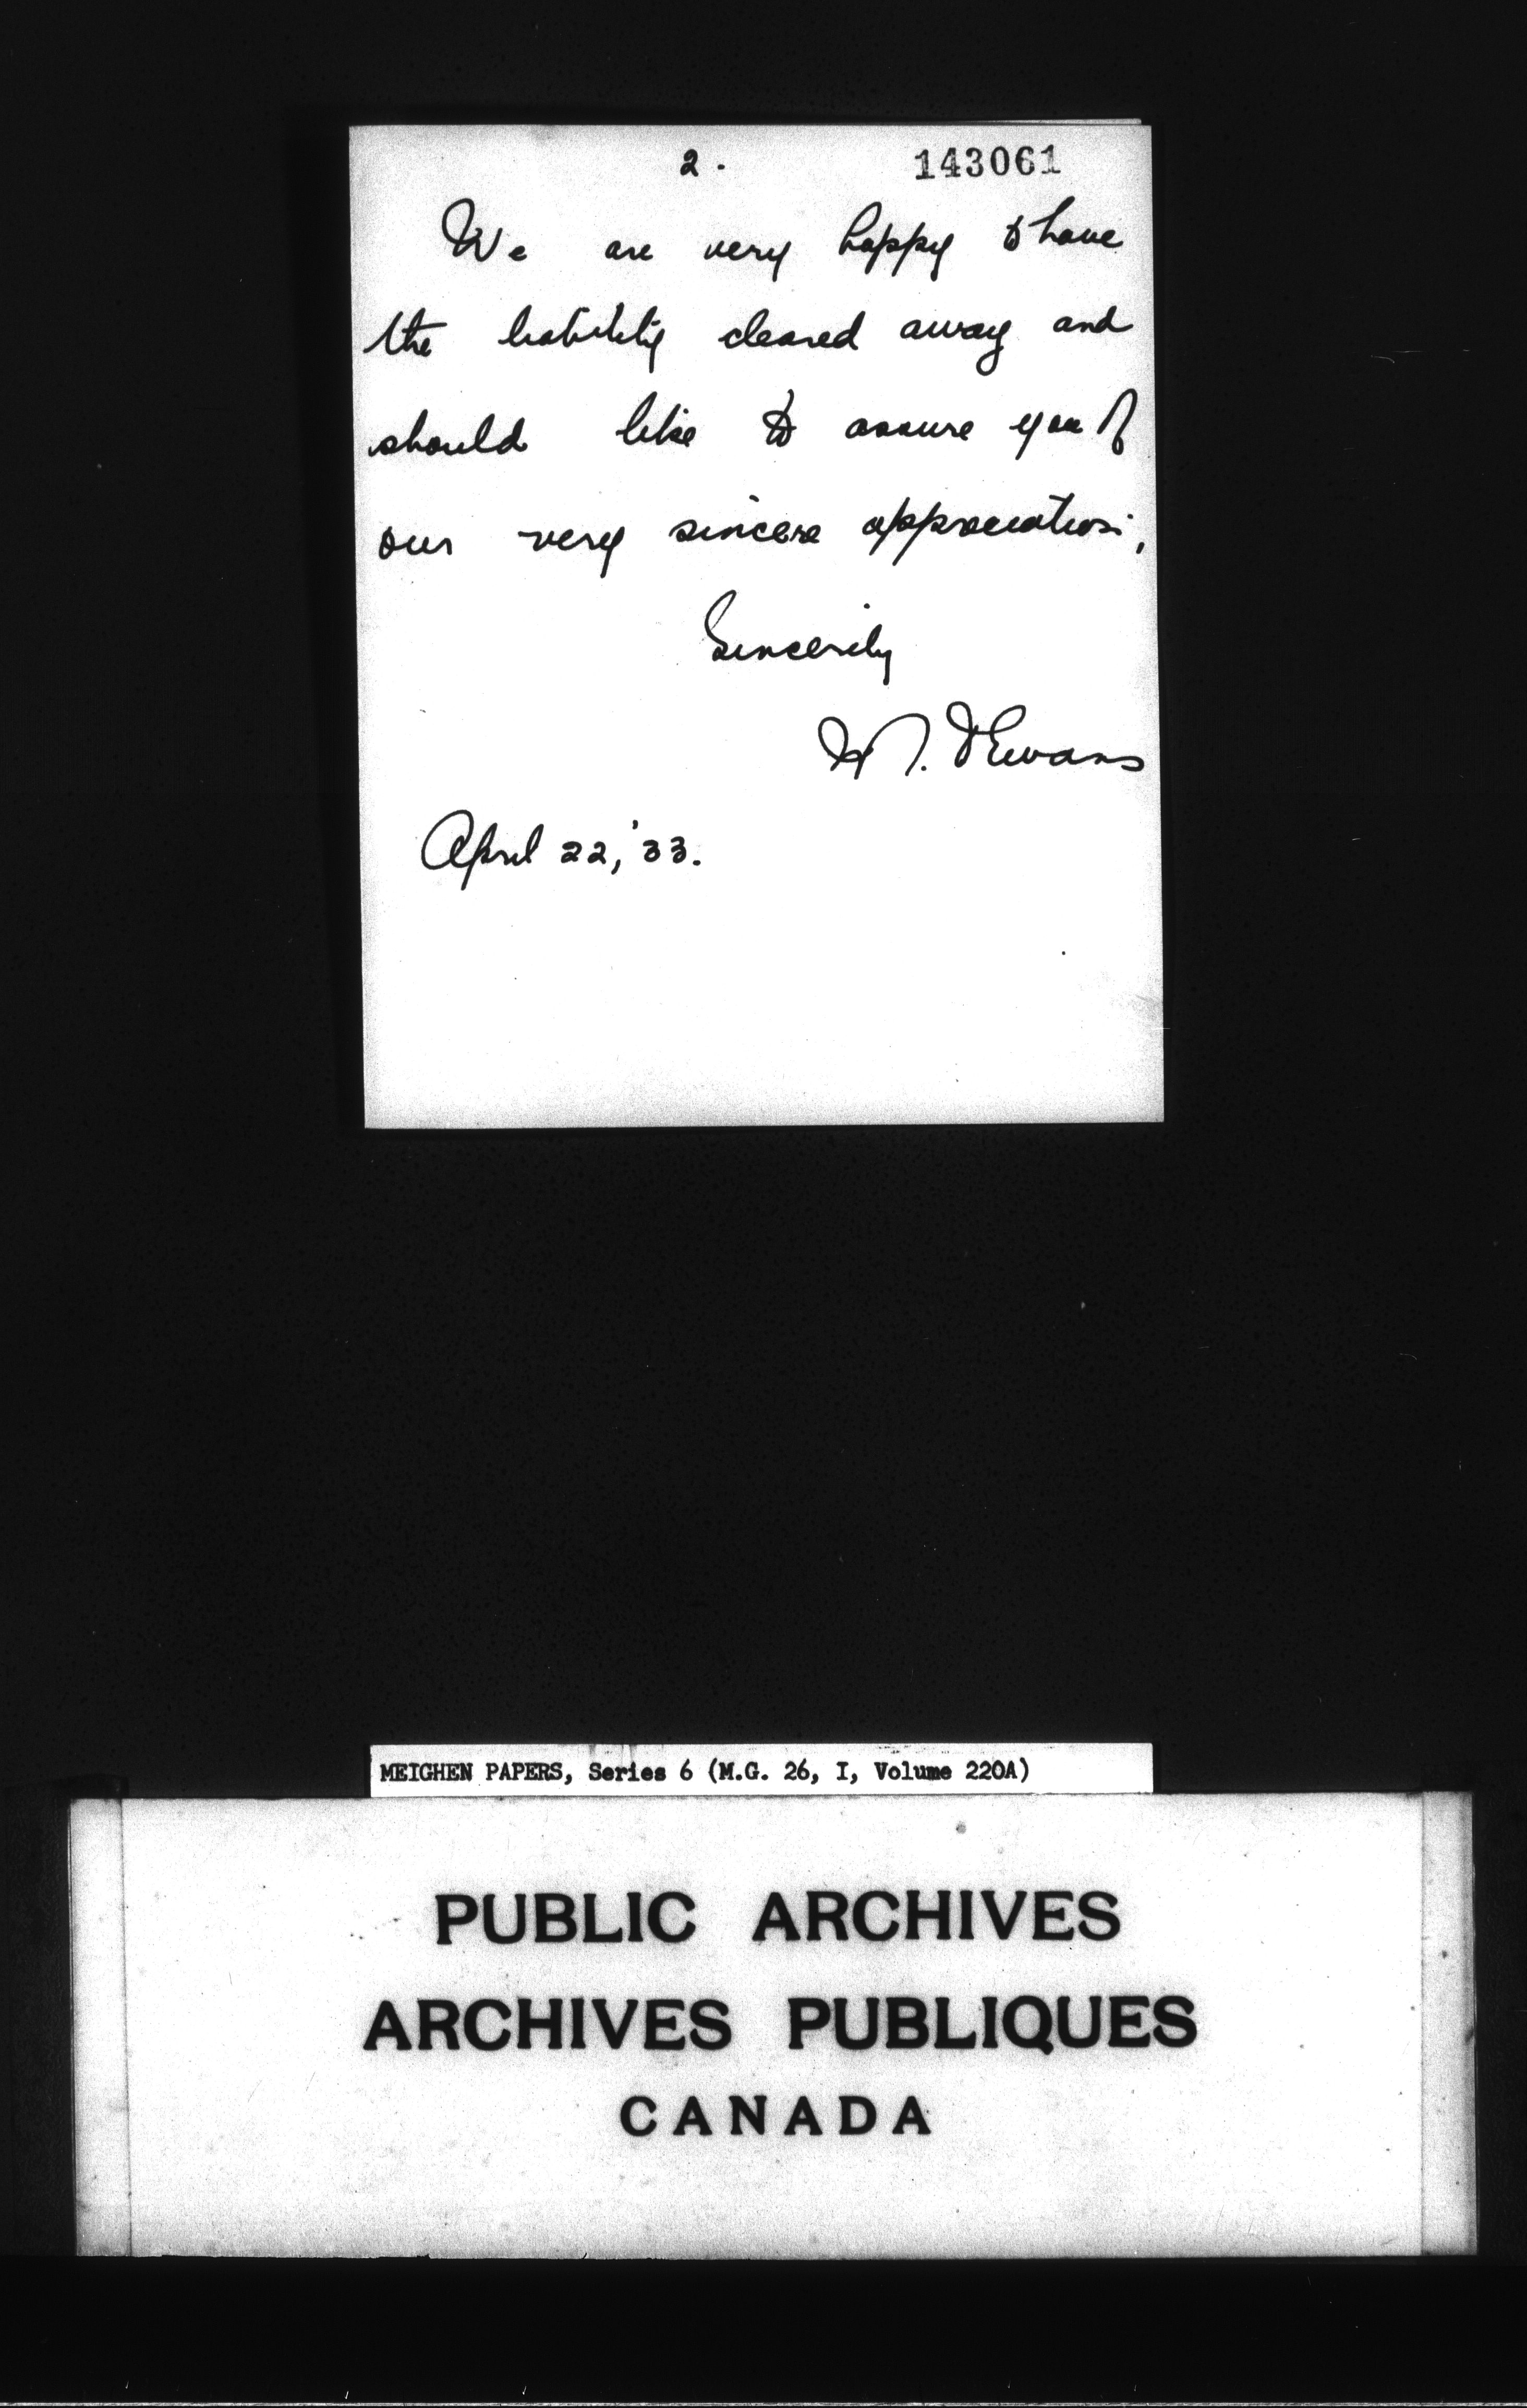 2. 143061
We are very happy to have
the liability cleared away and
should like to assure you of
our very sincere appreciation,
Sincerely
Evans
April 22, '33.
MEIGHEN PAPERS, Series 6 (M.G. 26, I, Volume 220A)
PUBLIC ARCHIVES
ARCHIVES PUBLIQUES
CANADA